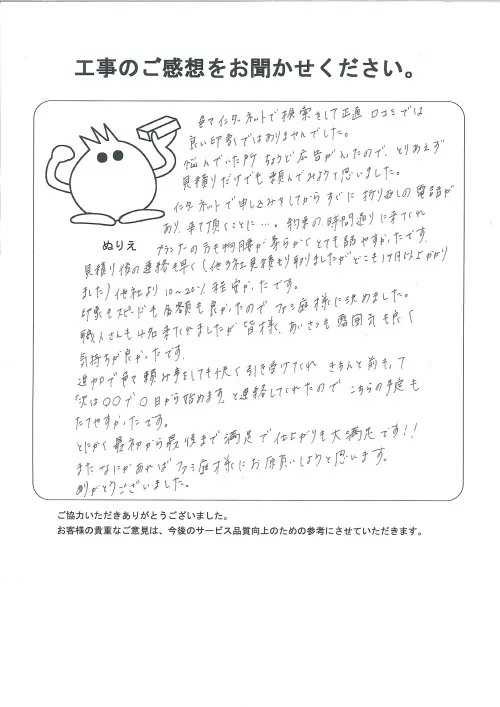 工事のご感想をお聞かせください。
色々インターネットで検索をして正直口コミでは
良い印象ではありませんでした。
悩んでいた所ちょうど広告が入ったので、とりあえず
見積りだけでも頼んでみようと思いました。
インターネットで申し込みをしてからすぐに折り返しの電話が
あり、来て頂くことに…。約束の時間通りに来てくれ
プランナーの方も物腰が柔らかくとても話やすかったです。
ぬりえ
見積り後の連絡も早く(他3社見積もり取りましたがどこも1ヶ月以上かかり
ました)他社より10〜20%程安かったです。
印象もスピードも金額も良かったのでファミ庭様に決めました。
職人さんも4名来てくれましたが皆様、あいさつも雰囲気も良く
気持ちが良かったです。
追加で色々頼み事をしても快く引き受けてくれ きちんと前もって
「次は〇〇で〇日から始めます」と連絡してくれたので こちらの予定も
たてやすかったです。
とにかく最初から最後まで満足で仕上がりも大満足です!!
またなにかあればファミ庭様にお願いしようと思います。
ありがとうございました。
ご協力いただきありがとうございました。
お客様の貴重なご意見は、今後のサービス品質向上のための参考にさせていただきます。